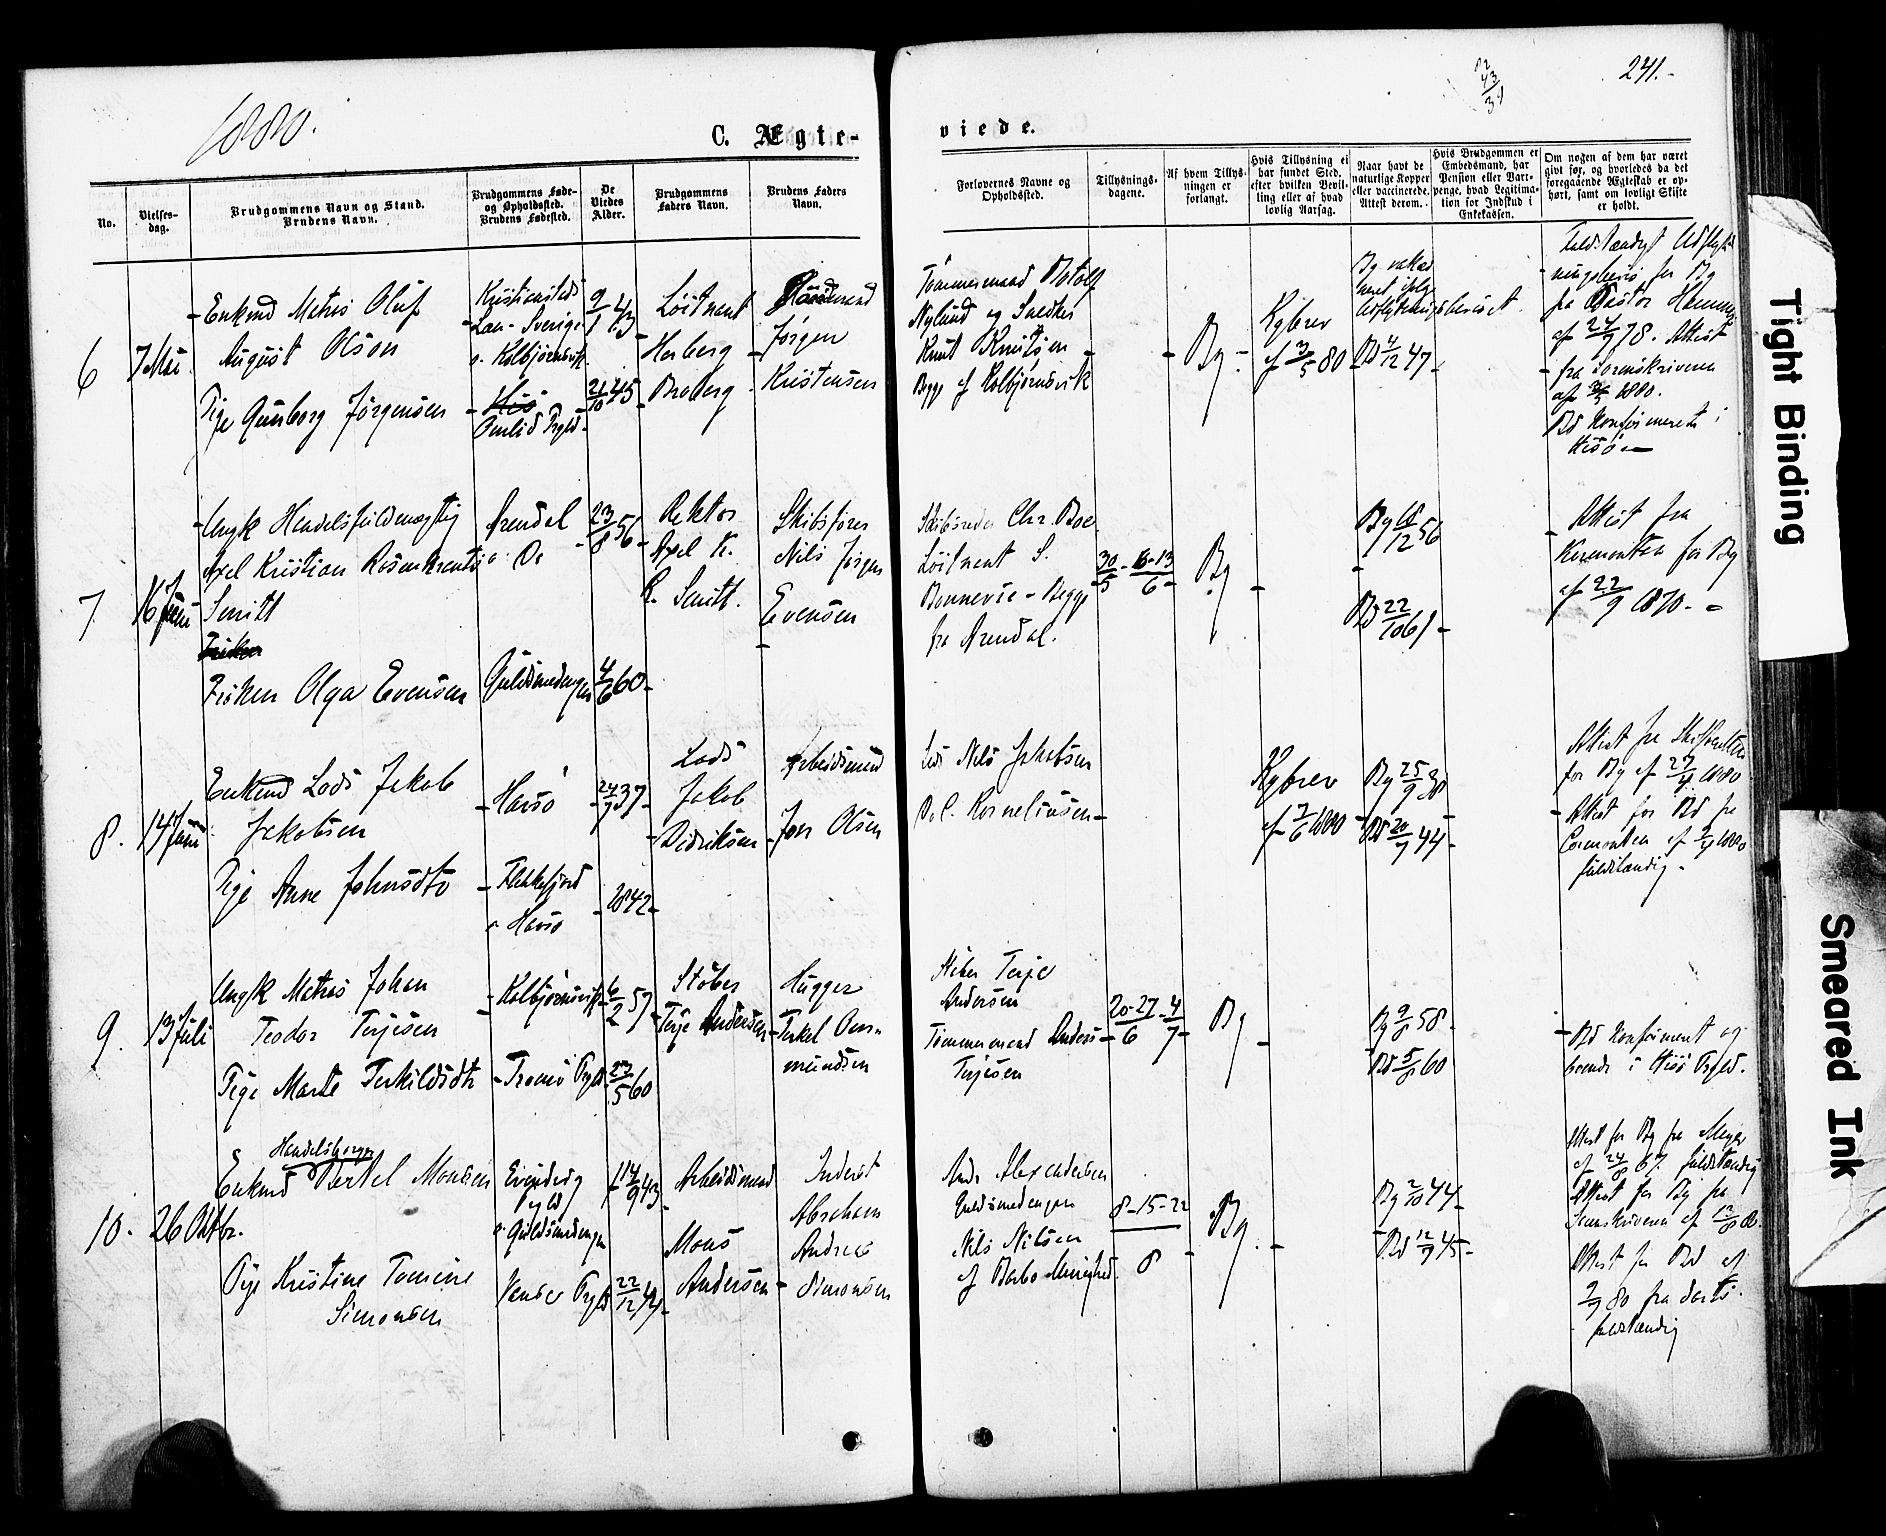 1880.
C. Ægte-
viede.
241.-
No.
Vielses-
dag.
Brudgommens Navn og Stand.
Brudens Navn.
Brudgommens Føde-
og Opholdssted.
Brudens Fødested.
De
Viedes
Alder.
Brudgommens
Faders Navn.
Brudens Faders
Navn.
Forlovernes Navne og
Opholdssted.
Tillysnings-
dagene.
Af hvem Tillys-
ningen er
forlangt.
Hvis Tillysning ei
har fundet Sted,
efter hvilken Bevil-
ling eller af hvad
lovlig Aarsag.
Naar havt de
naturlige Kopper
eller vaccinerede.
Attest derom.
Hvis Brudgommen er
Embedsmand, har
Pension eller Vart-
penge, hvad Legitima-
tion for Indskud i
Enkekassen.
Om nogen af dem har været
givt før, og hvorledes da det
foregaaende Ægteskab er op-
hørt, samt om lovligt Skifte
er holdt.
6
7 Mai
Enkmd Matros Oluf
August Olson
Pige Gunborg Jørgensen
Kristianstads
Læn - Sverige
o. Kolbjørnsvik
Omlid Prgld.
9/1 43
21/10 45
Løitnant
Herberg
Broberg
Jørgen
Kristensen
Tømmermand Botolf
Nylund og Snedker
Knut Knutsen
Begge af Kolbjørnsvik
Bg.
Kgbrev
af 3/5 80
Bd 4/12 47
fra Pastor
af 24/9 78. Attest
fra Sorenskriveren
1880.
Bd Konfirmeret i
Hisø
7.
16 Juni
Ungk Handelsfuldmægtig
Axel Kristian Rosenkrants
Smitt
Frøken
Frøken Olga Evensen
Arendal
o Do
Guldsmedengen
23/8 56
4/6 60
Rektor
Axel K.
R. Smitt.
Skibsfører
Nils Jørgen
Evensen
Skibsreder Chr. Boe
Løitnant S.
Bonnevie - Begge
fra Arendal.
30/5 - 6-13/6
Bg
Bg 18/12 56
Bd 22/10 61
Attest fra
Kæmonten for Bg
af 22/9 1870.
8.
14 Juni
Enkmd Lods Jakob
Jakobsen
Pige Anne Johnsdtr
Havsø
Flekkefjord
o Havsø
24/9 37
1842
Lods
Jakob
Didriksen
Arbeidsmand
Jon Olsen
Lods Nils Jakobsen
O. C. Korneliusen
Kgbrev
af 7/6 1880
Bg 25/9 38
Bd 20/7 44
Attest fra Skifteretten
for Bg af 27/4 1880
Attest for Bd fra
fuldstændig.
9.
13 Juli
Ungk Matros Johan
Teodor Terjesen
Pige Marte Terkildsdtr
Kolbjørnsvik
Tromø Prgld
6/2 57
23/5 60
Støber
Terje Andersen
Hugger
Terkel Om-
mundsen
Støber Terje
Andersen
Tømmermand Anders
Terjesen
20-27/6 - 4/7
Bg
Bg 9/8 58
Bd 5/8 60
Bd Konfirment og
boende i Hisø Prgld.
10.
26 Oktbr.
Handelsborger
Enkmd Bertel Monsen
Pige Kristine Tomine
Simonsen
Evindvig
Prgld
o Guldsmedengen
Vanse Prgld
14/9 43
22/12 44
Arbeidsmand
Mons
Andersen
Inderst
Abraham
Andreas
Simonsen
Anders Alexandersen
Guldsmedengen
Nils Nilsen
af Barbo Menighed.
8-15-22/8
Bg.
Bg 2/10 44
Bd 12/9 45
Attest for Bg fra
af 24/8 67. fuldstændig
Attest for Bg fra
Sorenskriveren af 12/8 80.
Attest for Bd af
fuldstændig
Tight Binding
Smeared Ink